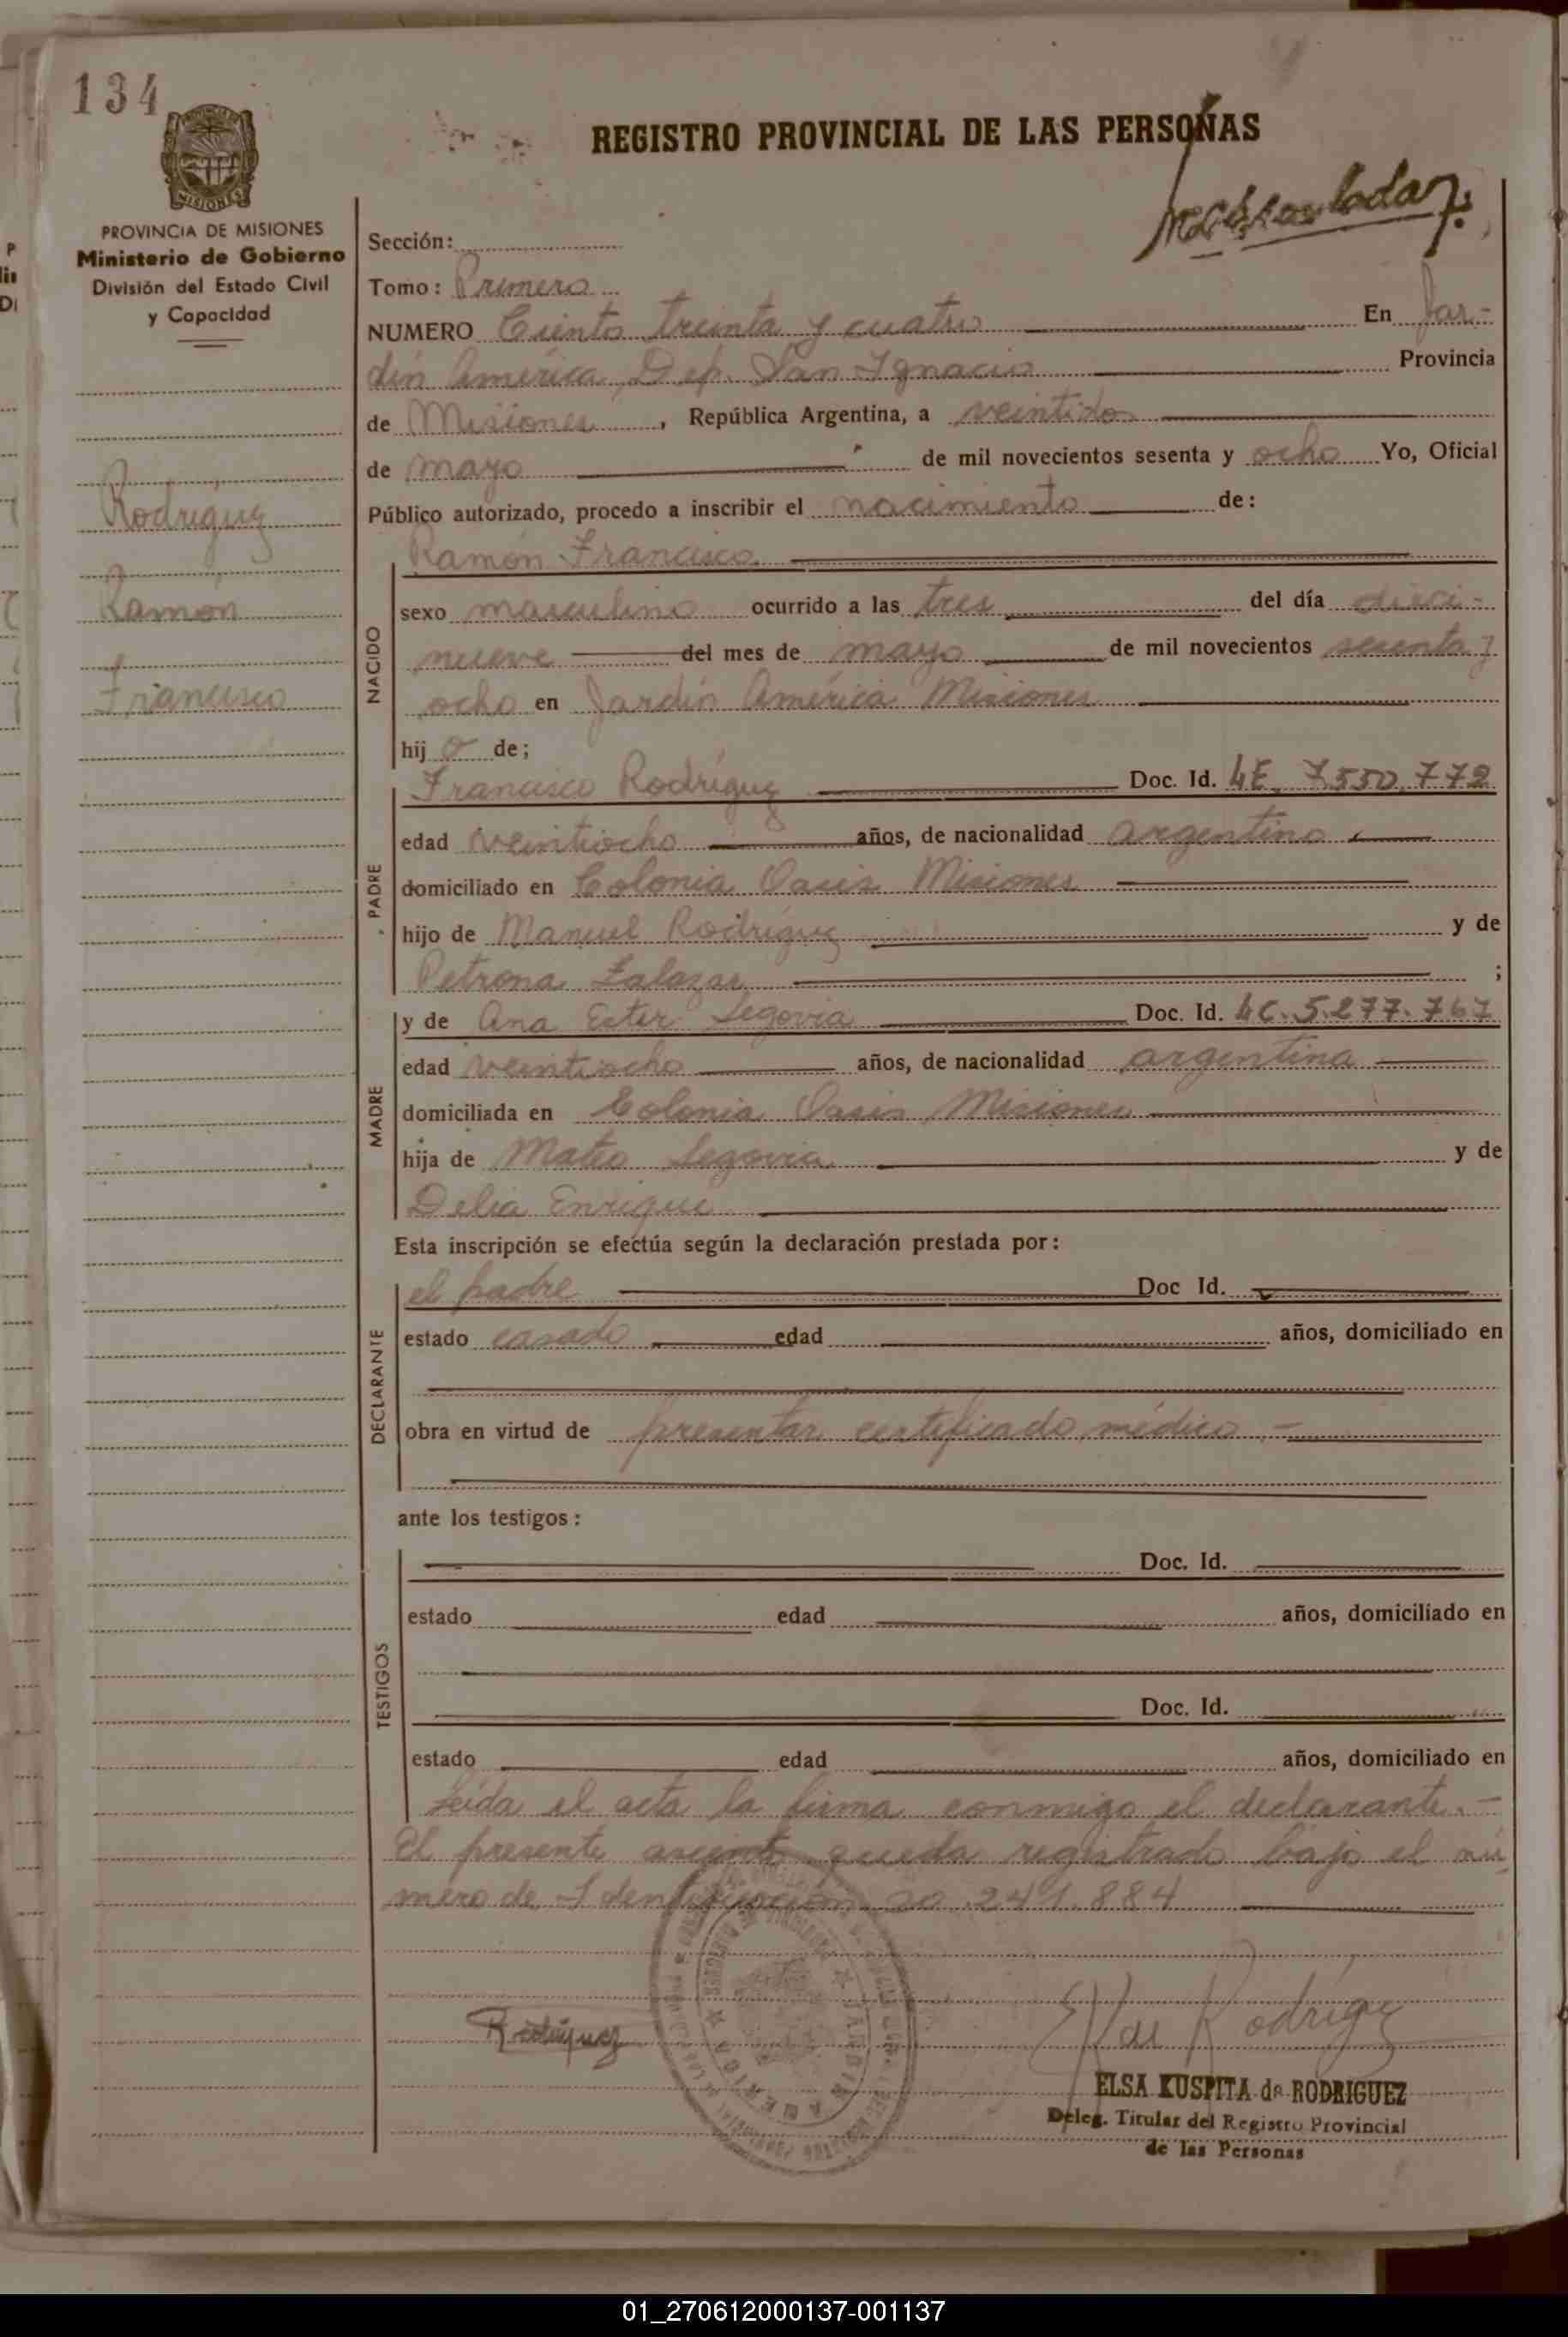 134
REGISTRO PROVINCIAL DE LAS PERSONAS
MISIONES
PROVINCIA DE MISIONES
Ministerio de Gobierno
División del Estado Civil
y Capacidad
Rodríguez
Ramón
Francisco
Sección:
Tomo: Primero
NUMERO Ciento treinta y cuatro En Jar-
dín América, Dep. San Ignacio Provincia
de Misiones, República Argentina, a veintidos
de mayo de mil novecientos sesenta y ocho Yo, Oficial
Público autorizado, procedo a inscribir el nacimiento de:
Ramón Francisco.
NACIDO
sexo masculino ocurrido a las tres del día dieci-
nueve del mes de mayo de mil novecientos sesenta y
ocho en Jardín América Misiones
hij o de;
Francisco Rodríguez Doc. Id. LE. 7.550.772
PADRE
edad veintiocho años, de nacionalidad argentino
domiciliado en Colonia Oasis Misiones
hijo de Manuel Rodríguez y de
Petrona Zalazar ;
y de Ana Ester Segovia Doc. Id. LC. 5.277.767
MADRE
edad veintiocho años, de nacionalidad argentina
domiciliada en Colonia Oasis Misiones
hija de Mateo Segovia y de
Delia Enrique
Esta inscripción se efectúa según la declaración prestada por:
el padre Doc Id.
DECLARANTE
estado casado edad años, domiciliado en
obra en virtud de presentar certificado médico.-
ante los testigos:
TESTIGOS
Doc. Id.
estado edad años, domiciliado en
Doc. Id.
estado edad años, domiciliado en
Leída el acta la firma conmigo el declarante.-
El presente asiento queda registrado bajo el nú
mero de Identificación 20.241.884
Rodríguez
Elsa Rodríguez
ELSA KUSPITA de RODRIGUEZ
Deleg. Titular del Registro Provincial
de las Personas
01_270612000137-001137